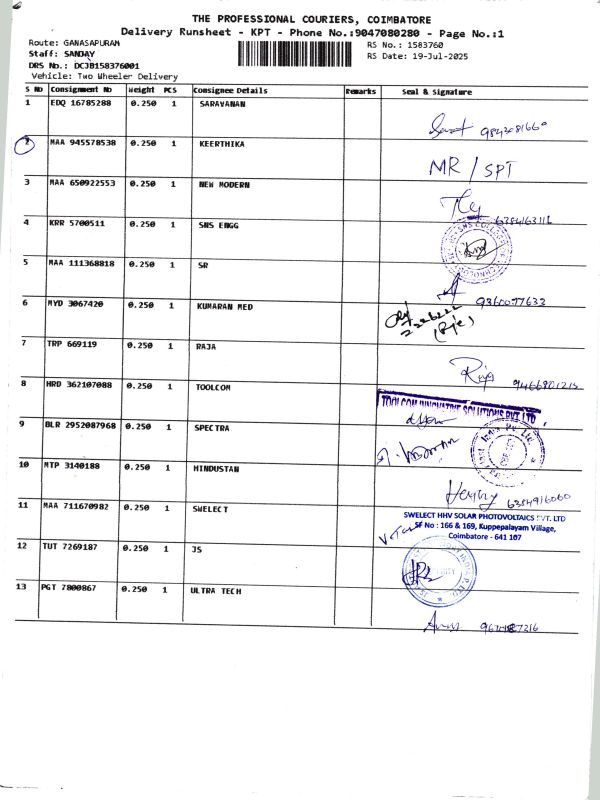 THE PROFESSIONAL COURIERS, COIMBATORE
Delivery Runsheet - KPT - Phone No.:9047080280 - Page No.:1
Route: GANASAPURAM
RS No.: 1583760
Staff: SANJAY
RS Date: 19-Jul-2025
DRS No.: DCJB158376001
Vehicle: Two Wheeler Delivery
S No Consignment No Weight PCS Consignee Details Remarks Seal & Signature
1 EDQ 16785288 0.250 1 SARAVANAN
2 MAA 945578538 0.250 1 KEERTHIKA
MR / SPT
3 MAA 650922553 0.250 1 NEW MODERN
6384163116
4 KRR 5700511 0.250 1 SNS ENGG
5 MAA 111368818 0.250 1 SR
9360077633
6 MYD 3067420 0.250 1 KUMARAN MED
7 TRP 669119 0.250 1 RAJA
Raja
8 HRD 362107088 0.250 1 TOOLCOM
TOOLCOM INNOVATIVE SOLUTIONS PVT LTD
9 BLR 2952087968 0.250 1 SPECTRA
10 MTP 3140188 0.250 1 HINDUSTAN
6384916060
11 MAA 711670982 0.250 1 SWELECT
SWELECT HHV SOLAR PHOTOVOLTAICS PVT. LTD
SF No : 166 & 169, Kuppepalayam Village,
Coimbatore - 641 107
12 TUT 7269187 0.250 1 JS
13 PGT 7800867 0.250 1 ULTRA TECH